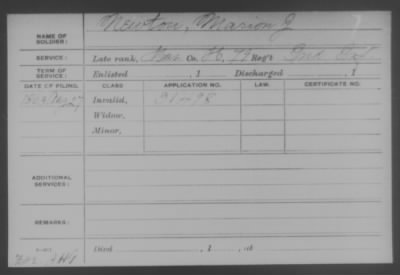 NAME OF SOLDIER: Newton, Marion J
SERVICE: Late rank, Co. H, 79 Reg't Ind. Inf.
TERM OF SERVICE: Enlisted , 1 Discharged , 1
DATE OF FILING. CLASS APPLICATION NO. LAW. CERTIFICATE NO.
Invalid,
Widow,
Minor,
ADDITIONAL SERVICES:
REMARKS:
Died , 1 , at